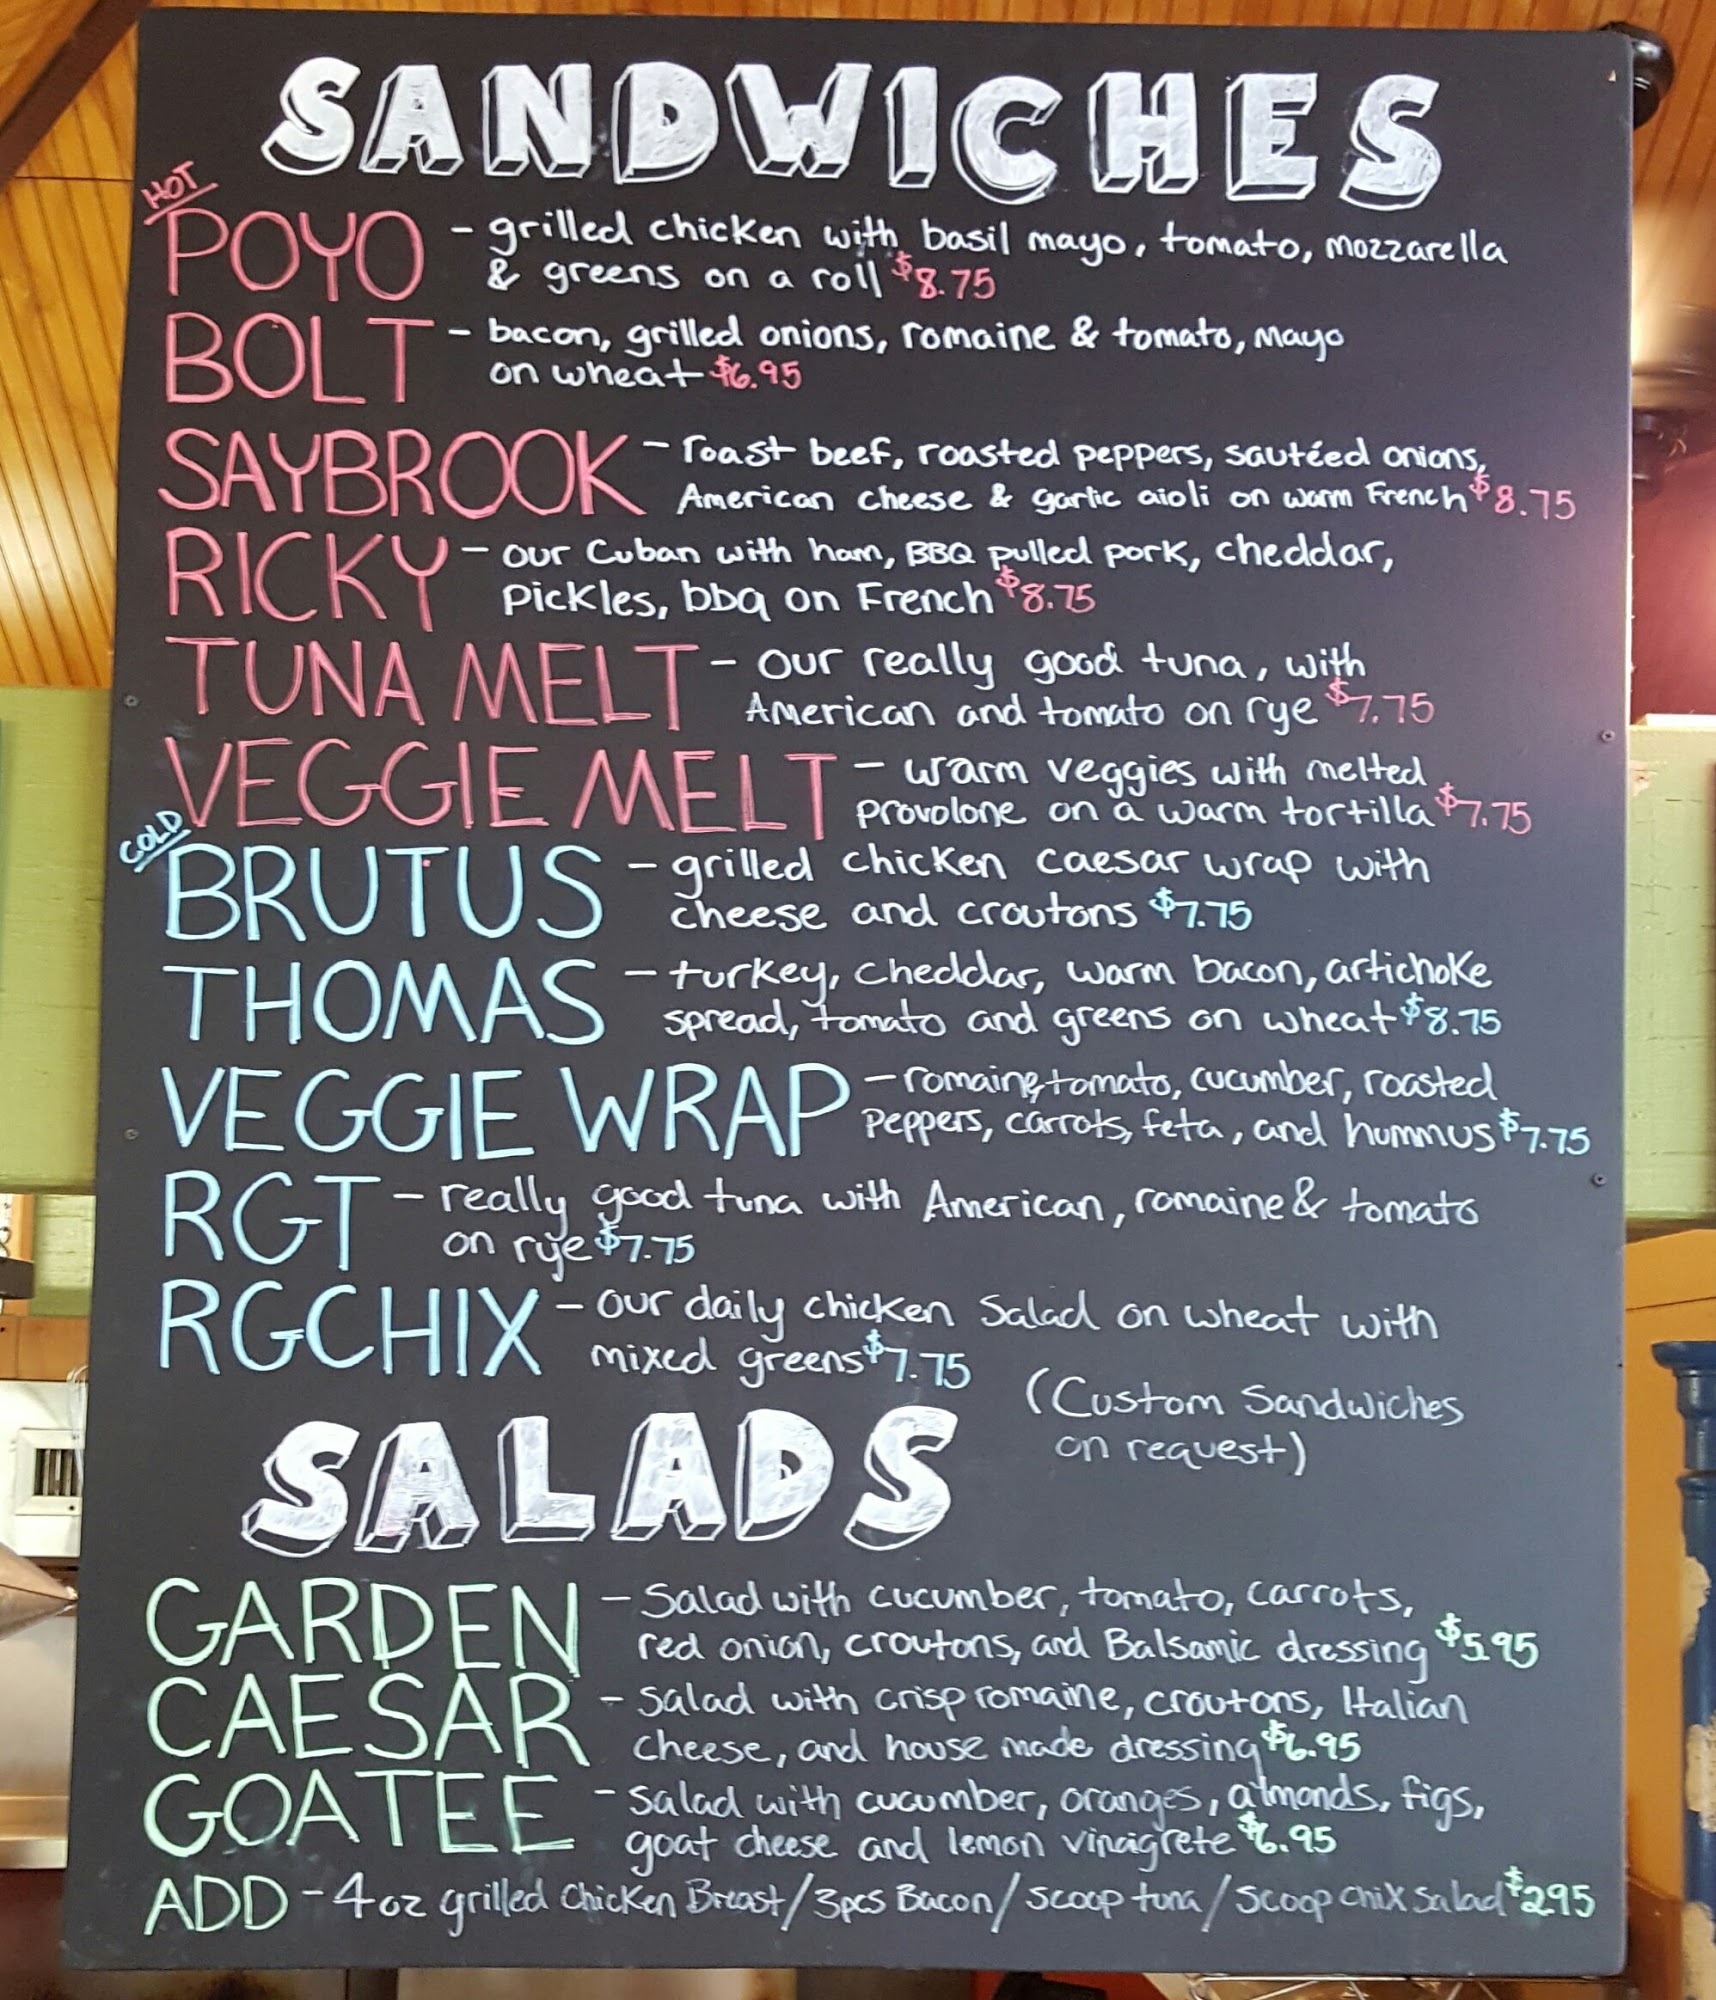 SANDWICHES
HOT
POYO - grilled chicken with basil mayo, tomato, mozzarella
& greens on a roll $8.75
BOLT - bacon, grilled onions, romaine & tomato, mayo
on wheat $6.95
SAYBROOK - roast beef, roasted peppers, sautéed onions,
American cheese & garlic aioli on warm French $8.75
RICKY - our Cuban with ham, BBQ pulled pork, cheddar,
pickles, bbq on French $8.75
TUNA MELT - our really good tuna, with
American and tomato on rye $7.75
VEGGIE MELT - warm veggies with melted
provolone on a warm tortilla $7.75
COLD
BRUTUS - grilled chicken caesar wrap with
cheese and croutons $7.75
THOMAS - turkey, cheddar, warm bacon, artichoke
spread, tomato and greens on wheat $8.75
VEGGIE WRAP - romaine, tomato, cucumber, roasted
peppers, carrots, feta, and hummus $7.75
RGT - really good tuna with American, romaine & tomato
on rye $7.75
RGCHIX - our daily chicken salad on wheat with
mixed greens $7.75
(Custom Sandwiches
on request)
SALADS
GARDEN - Salad with cucumber, tomato, carrots,
red onion, croutons, and Balsamic dressing $5.95
CAESAR - salad with crisp romaine, croutons, Italian
cheese, and house made dressing $6.95
GOATEE - salad with cucumber, oranges, almonds, figs,
goat cheese and lemon vinaigrete $6.95
ADD - 4oz grilled Chicken Breast/3pcs Bacon/scoop tuna/scoop chix salad $2.95